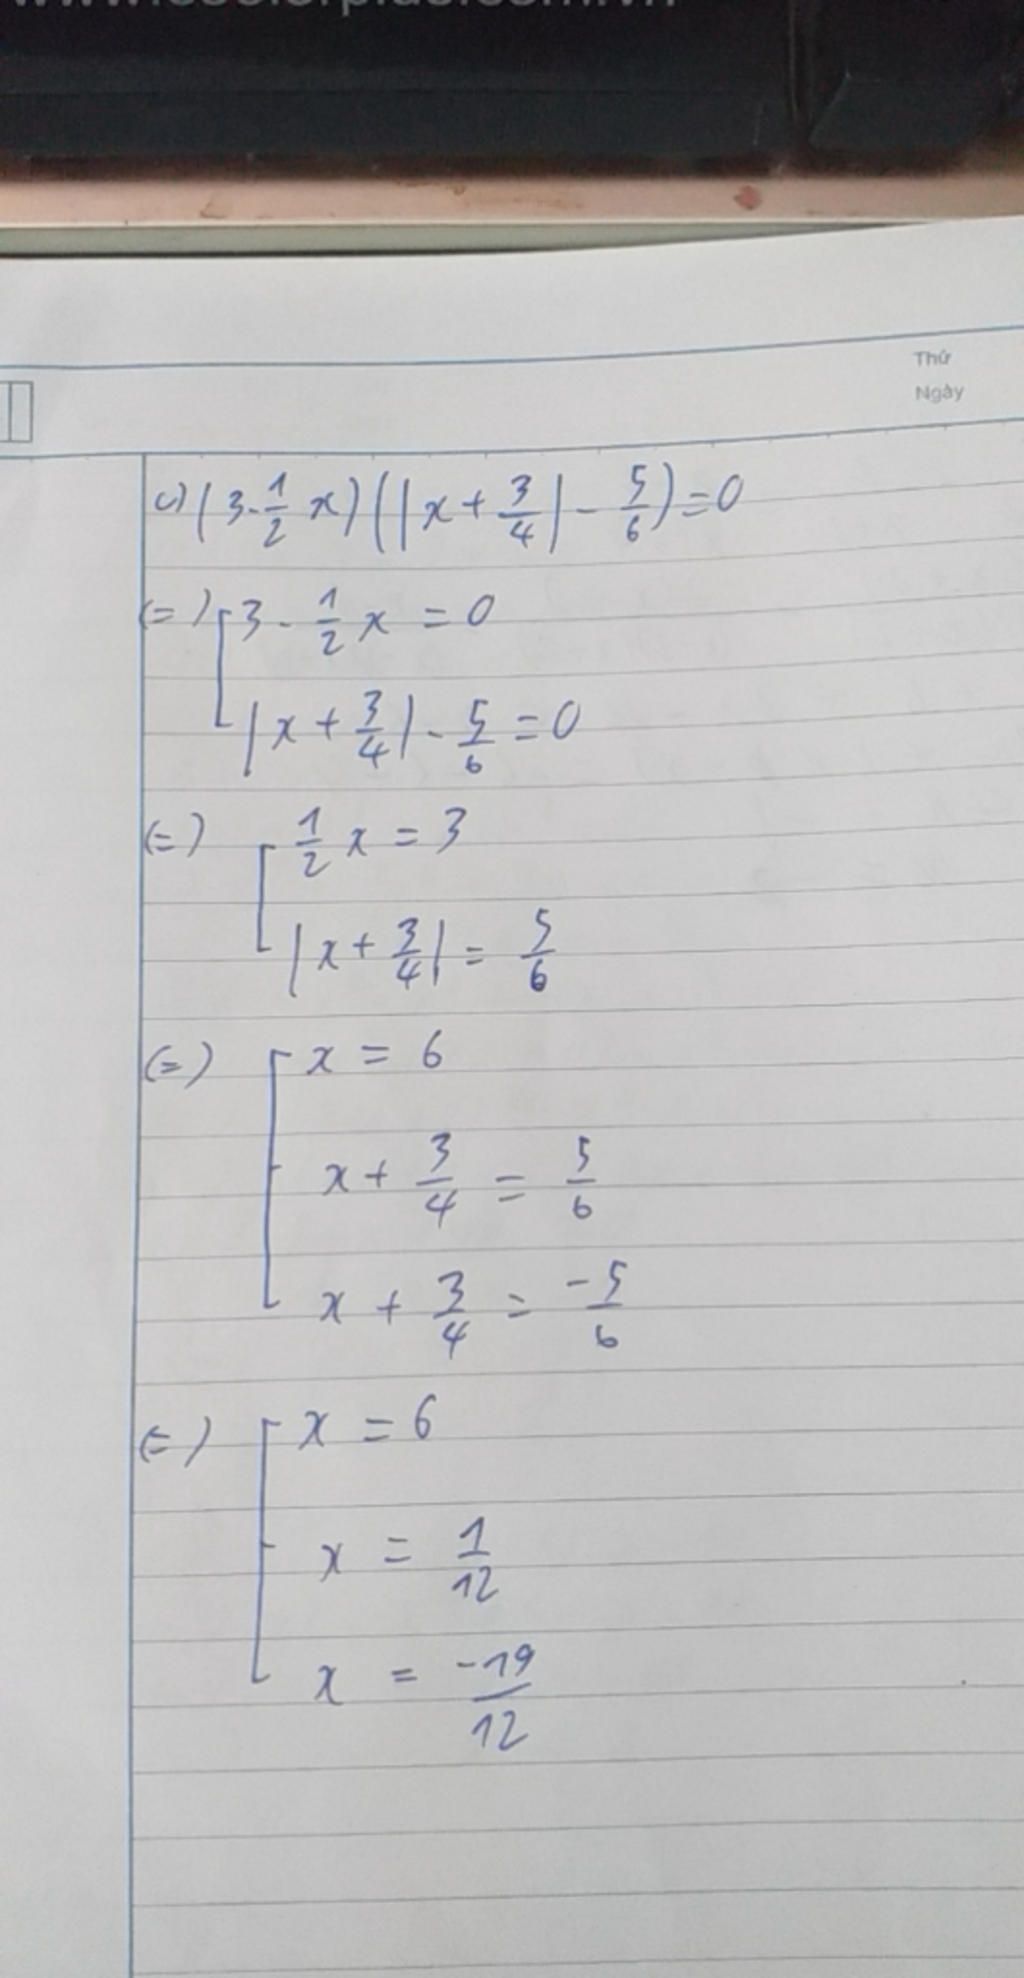 Thứ
Ngày
c) (3 - 1/2 x)(|x + 3/4| - 5/6) = 0
(=) [ 3 - 1/2 x = 0
|x + 3/4| - 5/6 = 0
(=) [ 1/2 x = 3
|x + 3/4| = 5/6
(=) [ x = 6
x + 3/4 = 5/6
x + 3/4 = -5/6
(=) [ x = 6
x = 1/12
x = -19/12